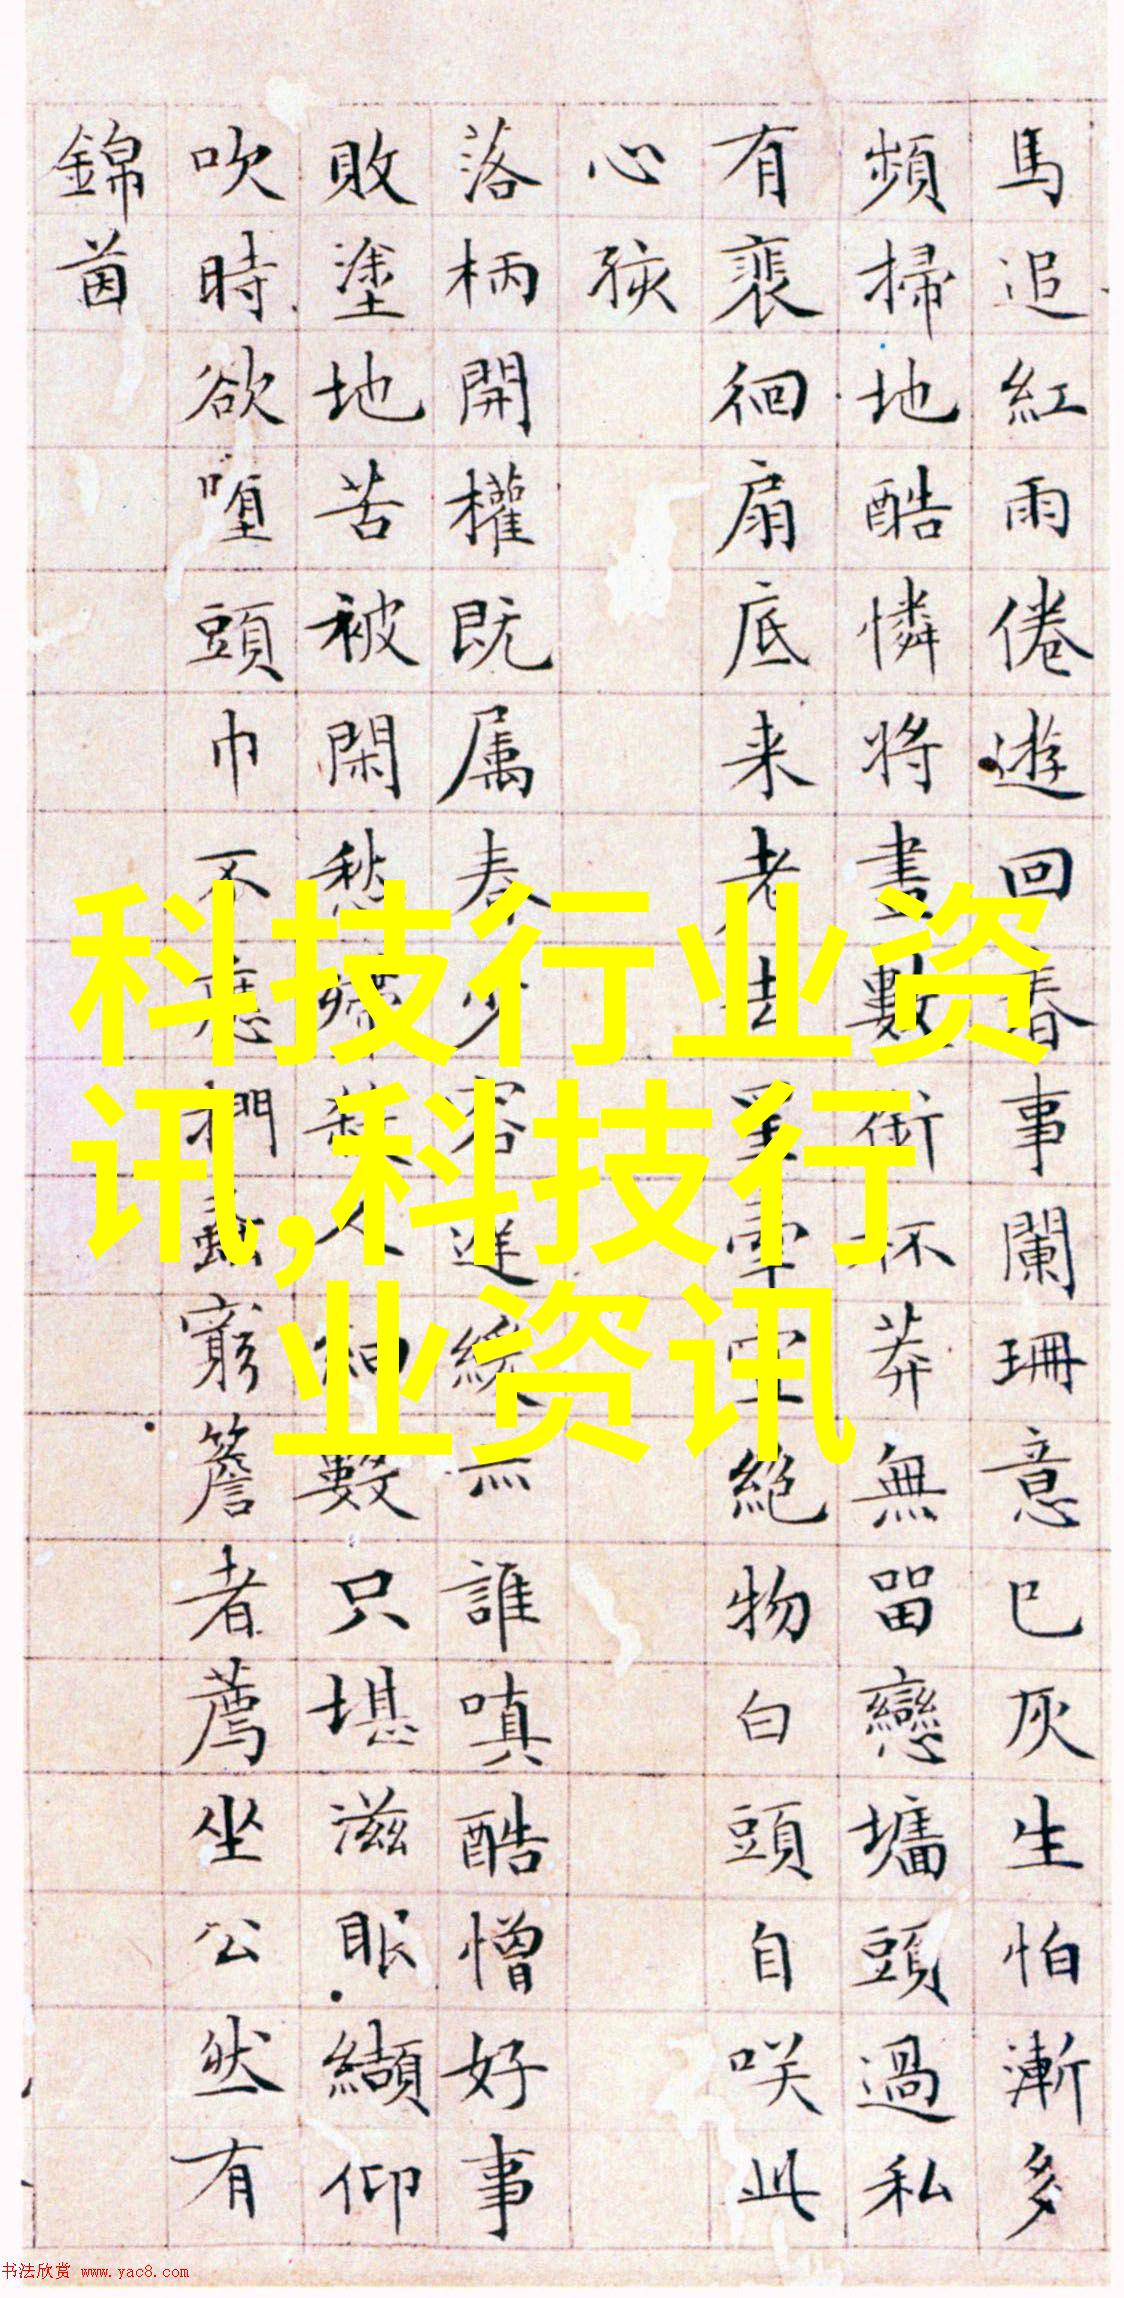 馬追紅雨倦遊回春事闌珊意已灰生怕漸多
頻掃地酷憐將盡數銜杯莽無留戀墻頭過私
有裵徊扇底来老去星霜空絶物白頭自咲此
心孩
落柄開權既属春少容遲緩無誰嗔酷憎好事
敗塗地苦被閑愁殺人細數只堪滋眼纈仰
吹時欲墮頭巾不應捫蝨窮簷者薦坐公然有
錦茵
科技行业资
讯,科技行
业资讯
书法欣赏 www.yac8.com